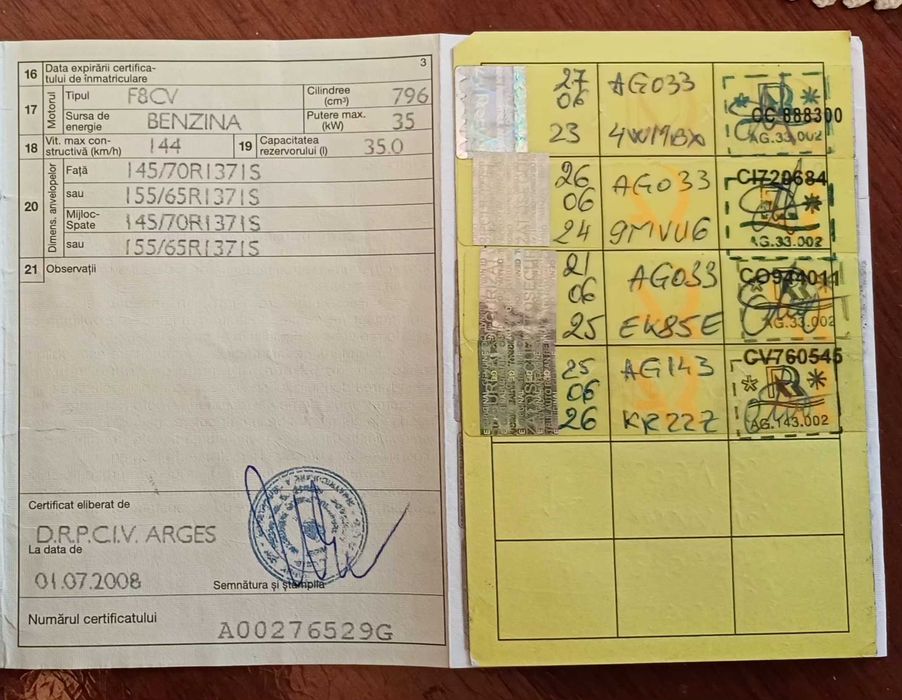 3
16 Data expirării certifica-
tului de înmatriculare
17 Motorul Tipul F8CV Cilindree (cm³) 796
Sursa de energie BENZINA Putere max. (kW) 35
18 Vit. max con-
structivă (km/h) 144 19 Capacitatea
rezervorului (l) 35.0
20 Dimens. anvelopelor Față 145/70R1371S
sau 155/65R1371S
Mijloc-
Spate 145/70R1371S
sau 155/65R1371S
21 Observații
Certificat eliberat de
D.R.P.C.I.V. ARGES
La data de
01.07.2008
Semnătura și ștampila
Numărul certificatului
A00276529G
27 AG033
06
23 4WM9BX
CC 888300
AG.33.002
26 AG033 CI720684
06
24 9MVU6
AG.33.002
21 AG033 CO944011
06
25 EK85E
AG.33.002
25 AG143 CV760545
06
26 KR22Z
AG.143.002